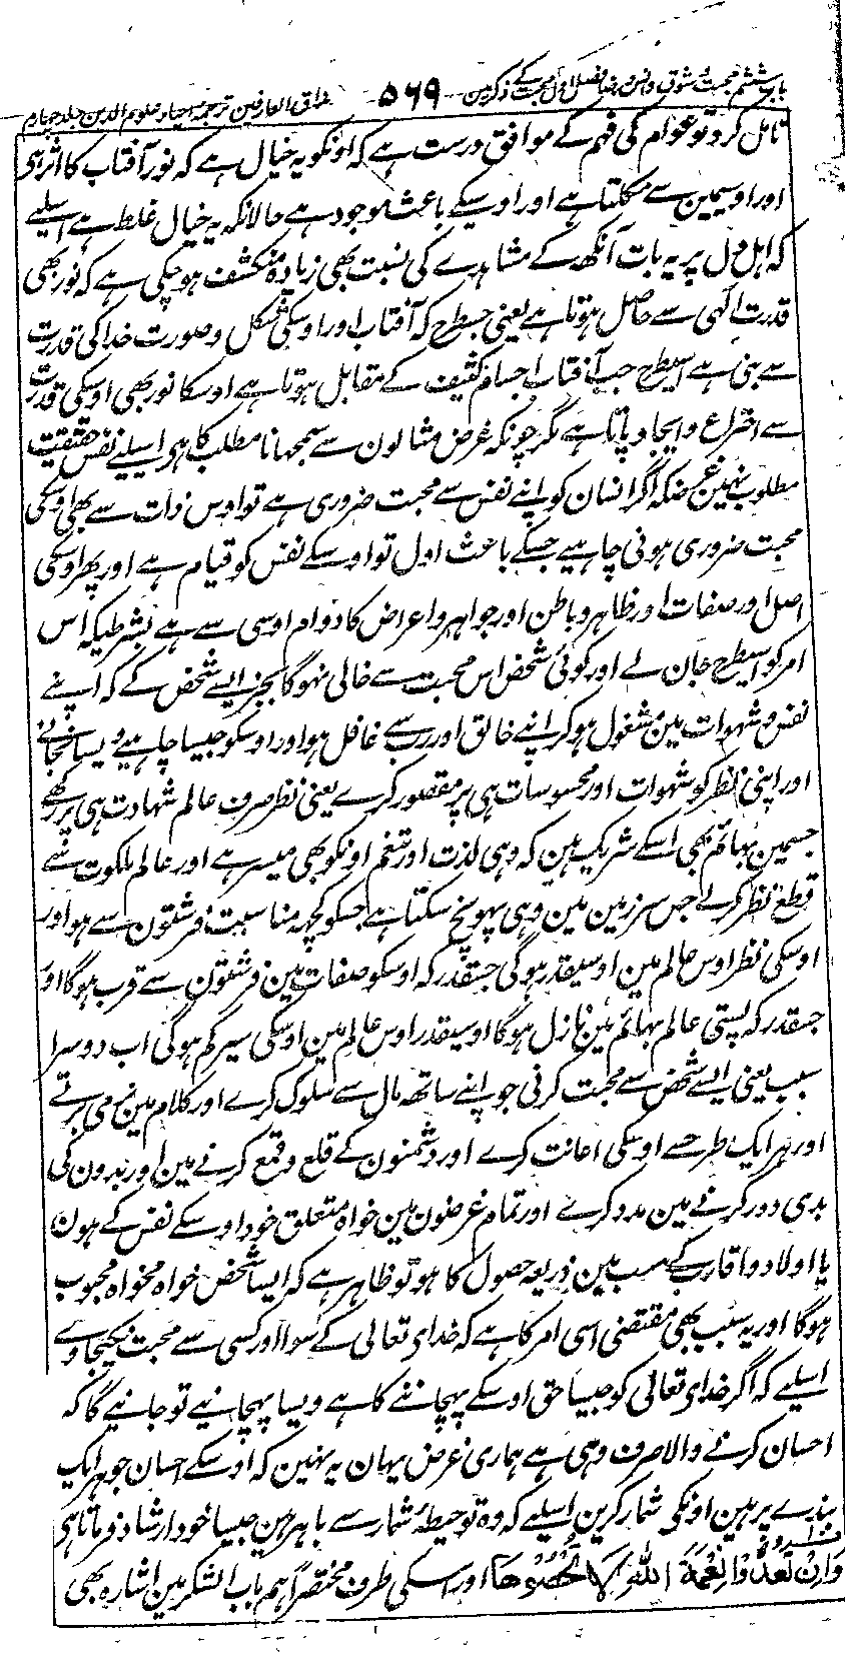 باب ششم محبت و شوق و انس و رضا فصل اول محبت کے ذکر مین ۵۶۹ مذاق العارفین ترجمہ احیاء علوم الدین جلد چہارم
تامل کرو تو عوام کی فہم کے موافق درست ہے کہ اونکو یہ خیال ہے کہ نور آفتاب کا اثر ہی
اور اوسیمین سے نکلتا ہے اور اوسیکے باعث موجود ہے حالانکہ یہ خیال غلط ہے اسلیے
کہ اہل دل پر یہ بات آنکھ کے مشاہدے کی نسبت بھی زیادہ منکشف ہو چکی ہے کہ نور بھی
قدرت الٰہی سے حاصل ہوتا ہے یعنی جسطرح کہ آفتاب اور اوسکی شکل و صورت خدا کی قدرت
سے بنی ہے اسیطرح جب آفتاب اجسام کثیف کے مقابل ہوتا ہے اوسکا نور بھی اوسکی قدرت
سے اختراع و ایجاد پاتا ہے مگر چونکہ غرض مثالون سے سمجھانا مطلب کا ہی اسلیے نفس حقیقت
مطلوب نہین غرضکہ اگر انسان کو اپنے نفس سے محبت ضروری ہے تو اوس ذات سے بھی اوسکی
محبت ضروری ہونی چاہیے جسکے باعث اول تو اوسکے نفس کو قیام ہے اور پھر اوسکی
اصل اور صفات اور ظاہر و باطن اور جواہر و اعراض کا دوام اوسی سے ہے بشرطیکہ اس
امر کو اسیطرح جان لے اور کوئی شخص اس محبت سے خالی نہوگا بجز ایسے شخص کے کہ اپنے
نفس و شہوات مین مشغول ہو کر اپنے خالق اور رب سے غافل ہو اور اوسکو جیسا چاہیے ویسا نجانے
اور اپنی نظر کو شہوات اور محسوسات ہی پر مقصور کرے یعنی نظر صرف عالم شہادت ہی پر رکھے
جسمین بہائم بھی اسکے شریک ہین کہ وہی لذت اور تنعم اونکو بھی میسر ہے اور عالم ملکوت سے
قطع نظر کرلے جس سرزمین مین وہی پہونچ سکتا ہے جسکو کچھہ مناسبت فرشتون سے ہو اور
اوسکی نظر اوس عالم مین اوسیقدر ہوگی جسقدر کہ اوسکو صفات مین فرشتون سے قرب ہوگا اور
جسقدر کہ پستی عالم بہائم مین نازل ہوگا اوسیقدر اوس عالم مین اوسکی سیر کم ہوگی اب دوسرا
سبب یعنی ایسے شخص سے محبت کرنی جو اپنے ساتھ مال سے سلوک کرے اور کلام مین نرمی برتے
اور ہر ایک طرح سے اوسکی اعانت کرے اور دشمنون کے قلع و قمع کرنے مین اور بدون کی
بدی دور کرنے مین مدد کرے اور تمام غرضون مین خواہ متعلق خود اوسکے نفس کے ہون
یا اولاد و اقارب کے سب مین ذریعہ حصول کا ہو تو ظاہر ہے کہ ایسا شخص خواہ مخواہ محبوب
ہوگا اور یہ سبب بھی مقتضی اسی امر کا ہے کہ خدای تعالی کے سوا اور کسی سے محبت نکیجاوے
اسلیے کہ اگر خدای تعالی کو جیسا حق اوسکے پہچاننے کا ہے ویسا پہچانیے تو جانیے گا کہ
احسان کرنے والا صرف وہی ہے ہماری غرض یہان یہ نہین کہ اوسکے احسان جو ہر ایک
بندے پر ہین اونکی شمار کرین اسلیے کہ وہ تو حیطۂ شمار سے باہر ہین جیسا خود ارشاد فرماتا ہی
وَاِنْ تَعُدُّوْا نِعْمَةَ اللّٰهِ لَا تُحْصُوْهَا اور اسکی طرف مختصراً ہم باب الشکر مین اشارہ بھی